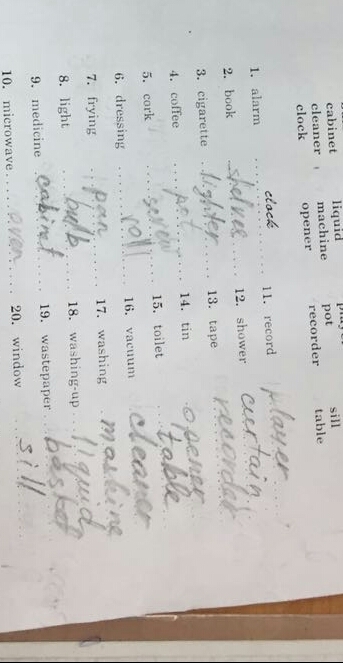 cabinet liquid sill
cleaner machine pot table
clock opener recorder
1. alarm clock 11. record player
2. book shelve 12. shower curtain
3. cigarette lighter 13. tape recorder
4. coffee pot 14. tin opener
5. cork screw 15. toilet table
6. dressing roll 16. vacuum cleaner
7. frying pan 17. washing mashine
8. light bulb 18. washing-up liquid
9. medicine cabinet 19. wastepaper basket
10. microwave oven 20. window sill